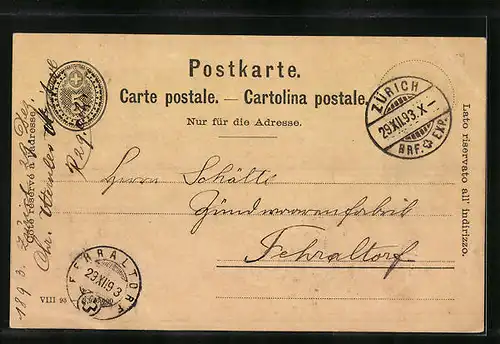 Postkarte.
Carte postale. — Cartolina postale.
Nur für die Adresse.
ZÜRICH
29.XII.93.X–
BRF. EXP.
Lato riservato all' indirizzo.
Côté réservé à l'adresse.
1893. Zürich 29 Dez.
Herrn Schälte
Zündwarenfabrik
Fehraltorf
FEHRALTORF
29.XII.93
VIII 93